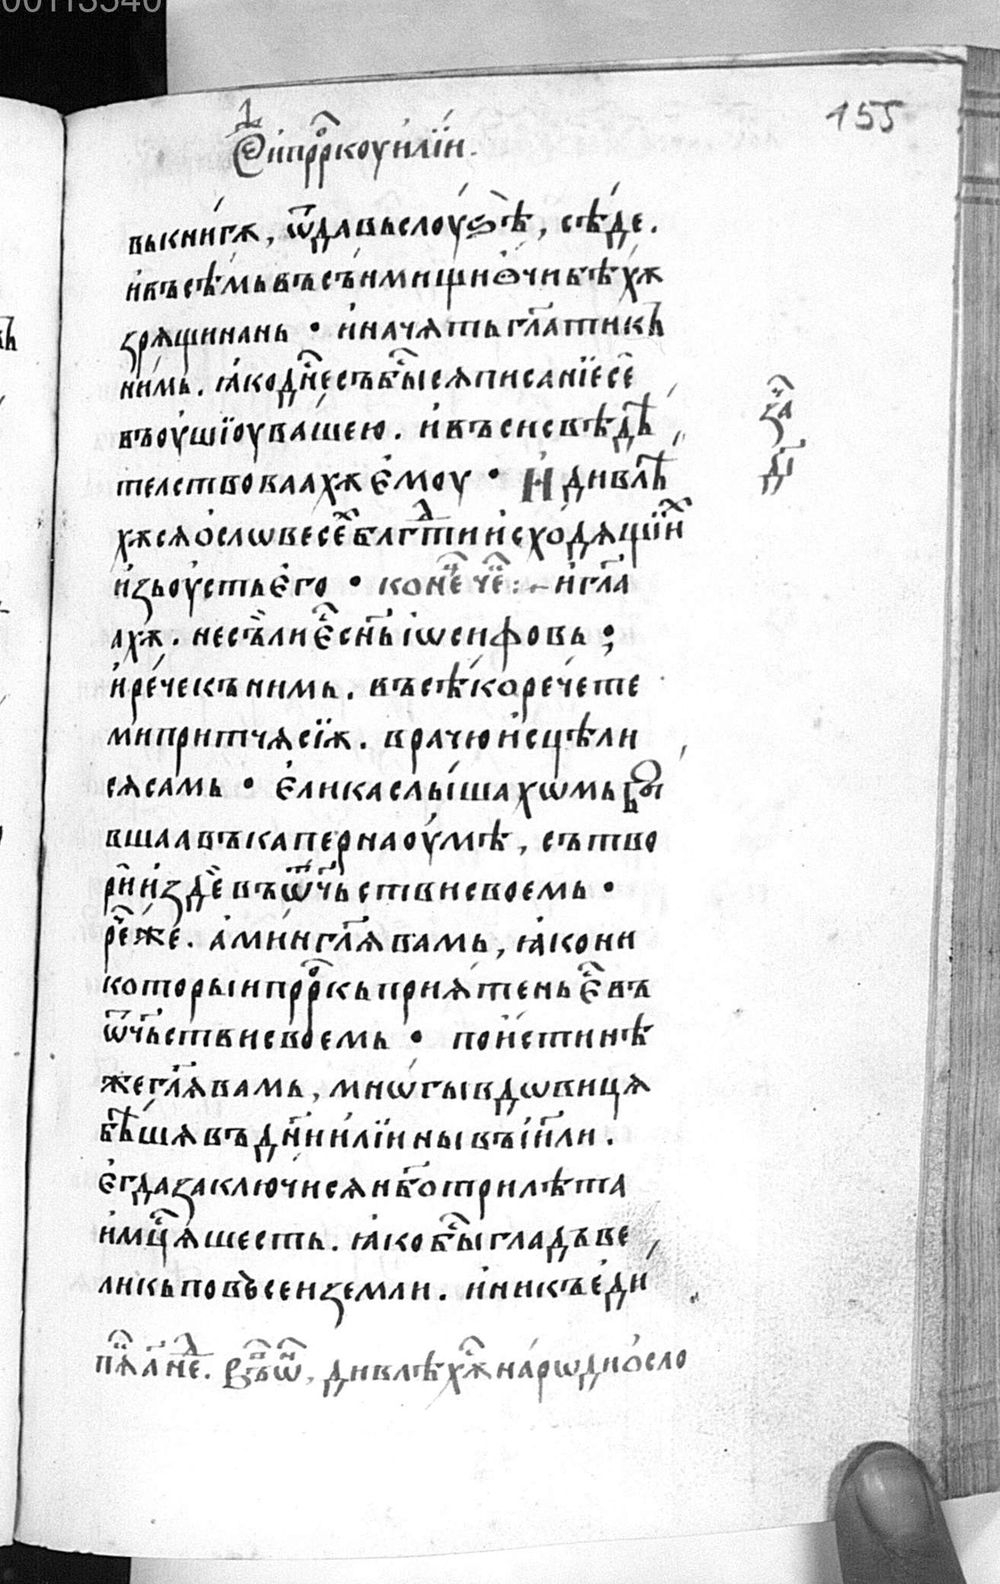 00113540
155
Є҃ и прⷪ҇ркоу илїи.
вь книгѫ, ѿдавь слоуѕѣ, сѣде.
и въсѣмь въ сънмищи ѻчи бѣхѫ
зрѧщи на нь • и начѧть гл҃ати къ
нимь. ꙗко дн҃есь събы́сѧ писанїе се
въ оушїоу вашею. и въси свѣдѣ
телствоваахѫ ємоу • И дивлѣ
хѫсѧ ѻ словесеⷯ блгⷣти исходѧщїиⷯ
изь оусть єго • конеⷰ҇ чеⷮ :~ и гл҃а
ахѫ. не съ ли єⷭ҇ сн҃ь іѡсифовь ;
и рече къ нимь. въсѣко речете
ми притчѧ сїѫ. врачю исцѣли
сѧ самь • єлика слышахѡмь бы
вшаа въ капернаоумѣ, сътво
ри и зде въ ѿч҃ьстви своемь •
реⷱ҇ же. аминь гл҃ѧ вамь, ꙗко ни
который прⷪ҇ркь приѧтень єⷭ҇ въ
ѿч҃ьстви своемь • по истинѣ
же гл҃ѧ вамь, мнѡгы вдѡвицѧ
бѣшѧ въ дн҃и илїины въ іи҃ли.
єгда заключисѧ нб҃о три лѣта
и мцⷭ҇ѧ шесть. ꙗко быⷭ҇ гладь ве
ликь по въсеи земли. и ни къ єди
зⷱ҇а
д҃і
нⷣе. дивлѣхѫⷤ нарѡди ѻ сло